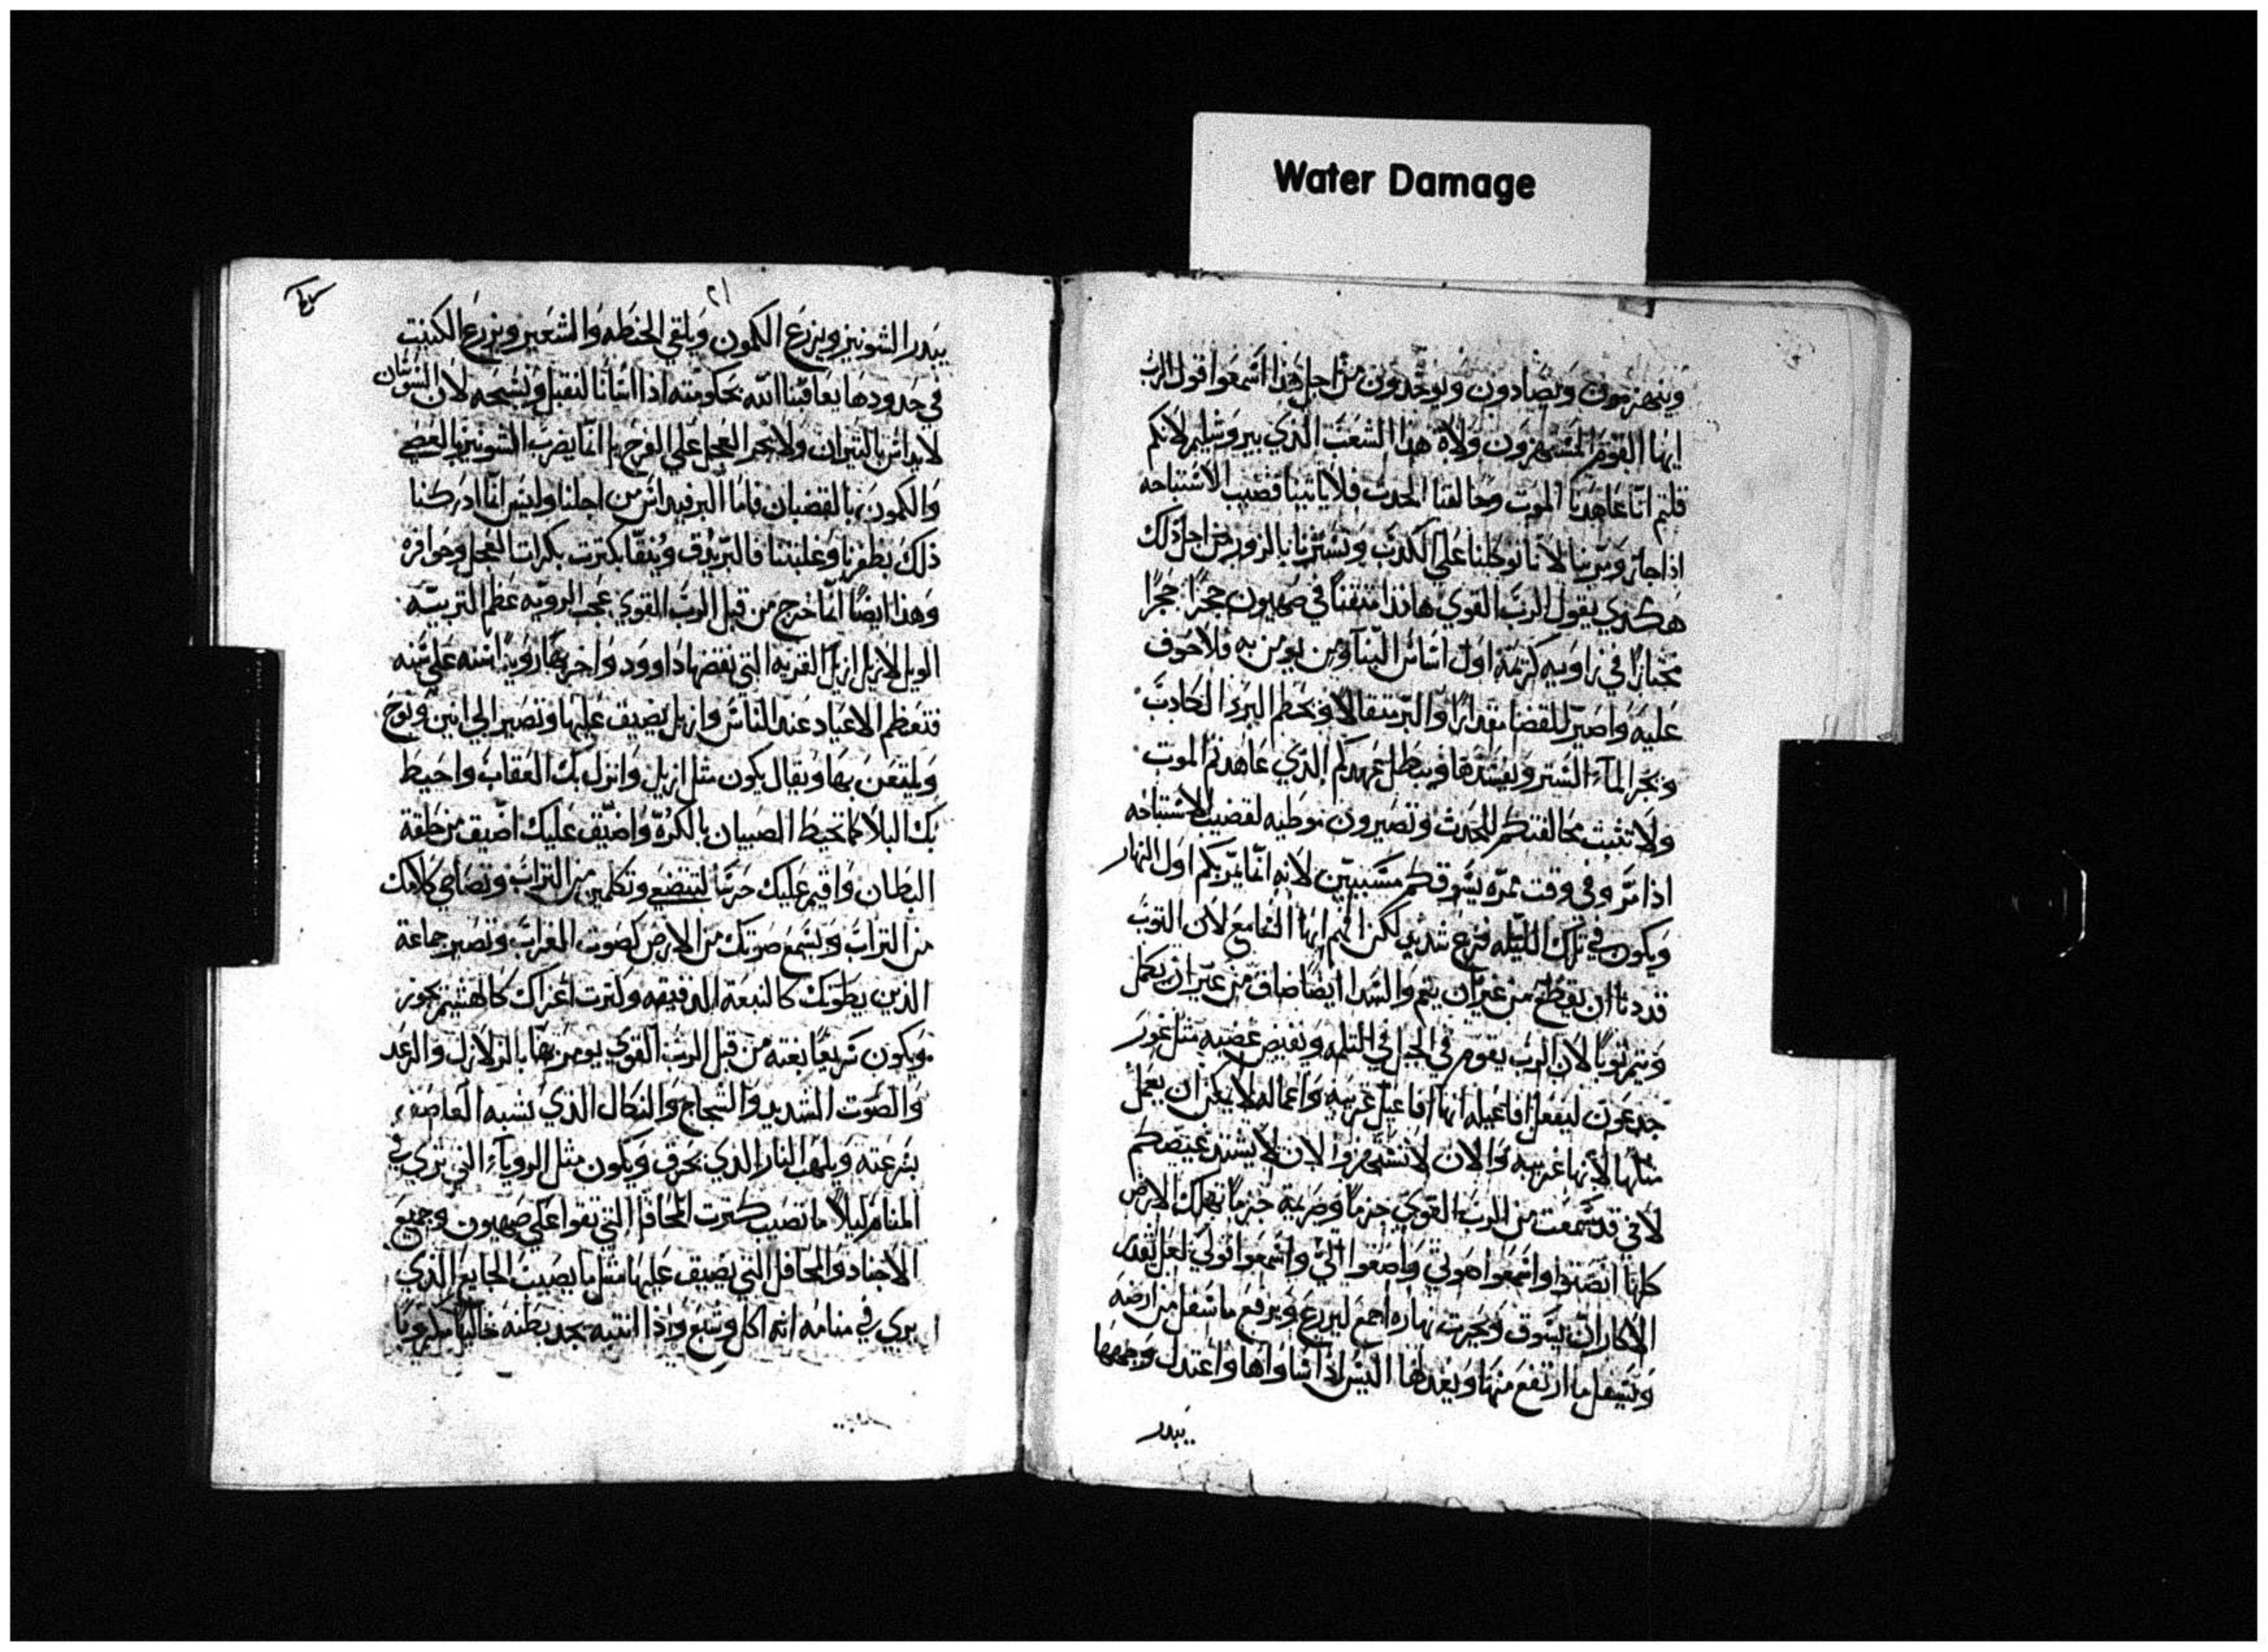 Water Damage
وينهزمون ويصادون ويوخدون من اجل هذا اسمعوا قول الرب
ايها القوم المستهزون ولاة هذا الشعب الذي بيروشليم لانكم
قلتم انا عاهدنا الموت وحالفنا الجدث فلا ياتينا قضيب الاستباحه
اذا جاز وبنا لانا توكلنا علي الكدب وتسترنا بالزور من اجل ذلك
هكذي يقول الرب القوي هانذا متقناً في صهيون حجرًا حجرًا
مختارًا في زاويه كريمة اول اساس البنا ومن يومن به فلا خوف
عليه واصير للقضا مقدارًا والبر مثقالاً ويحطم البرد الكاذب
ويجر المآء الستر ويفسدها ويبطل عهدكم الذي عاهدتم الموت
ولا تثبت محالفتكم للجدث وتصيرون موطيه لقضيب الاستباحه
اذا مر وفي وقت ممره يسوقكم مسببيين لانه انما يمر بكم اول النهار
ويكون في تلك الليله فزع شديد لكن انتم ايها السامع لان الثوب
قد دنا ان يقطع من غير ان يتم والسدا ايضًا ضاق من غير ان يكمل
ويتم ثوبًا لان الرب يقوم في الجبل في الثلمه ويفيض غضبه مثل غور
جدعون ليفعل افاعيله انها افاعيل غريبه واعماله لا يمكن ان يعمل
مثلها لانها غريبه والان لا تستهزوا لان لا يشتد غيضكم
لاني قد سمعت من الرب القوي جزمًا وصريمة جزمًا تهلك الارض
كلها انصتوا واسمعوا صوتي واصغوا الي واسمعوا قولي لعل لقدر
الاكار ان يسوق ويحرث نهاره اجمع ليزرع ويرفع ما سفل من ارضه
ويسفل ما ارتفع منها ويعدلها اليس اذا ساواها واعتدل وجهها
يبدر
٢١
يبدر الشونيز ويزرع الكمون ويلقي الحنطه والشعير ويزرع الكنيت
في حدودها يعاقبنا الله بحكومته اذا اسانا لنقبل ونسبحه لان الشوشان
لا يداس بالنيران ولا تجر العجل علي الفرح بل انما يضرب الشونيز بالعصي
والكمون بالقضبان فاما البر فيداس من اجلنا وليس انما ادركنا
ذلك بظفرنا وغلبتنا فالبر يدق وينقا بكترت بكرات العجل وحوافره
وهذا ايضًا انما خرج من قبل الرب القوي عجب الرويه عظم التربيه
الويل لازيل ازيل القريه التي نقضها داوود واخربها زويد اسنه علي سنه
فتعظم الاعياد عند الناس وازيل يضيق عليها وتصير الي انين ونوح
ويلتعن بها ويقال يكون مثل ازيل وانزل بك العقاب واحيط
بك البلا كما تحيط الصبيان بالكرة واضيق عليك اضيق من حلقة
البطان واقيم عليك حربًا لتتضع وتكلمين من التراب وتصاحي كلامك
من التراب ويسمع صوتك من الارض كصوت الغراب وتصير جماعة
الذين يطوك كالنبعة الدقيقه وكترت اعزاك كالهشيم يجوز
ويكون سريعًا بغته من قبل الرب القوي يومر بها بالزلازل والرعد
والصوت الشديد والسجاج والنكال الذي يشبه العاصف
بسرعته ويلهب النار الذي يحرق ويكون مثل الروياء التي تري في
المنام ليلاً ما تصيب كترت المحافل التي تقوا علي صهيون وجميع
الاجناد والمحافل التي يضيق عليها مثل ما يصيب الجايع الذي
يري في منامه انه اكل وشبع واذا انتبه يجد بطنه خاليًا مكروبًا